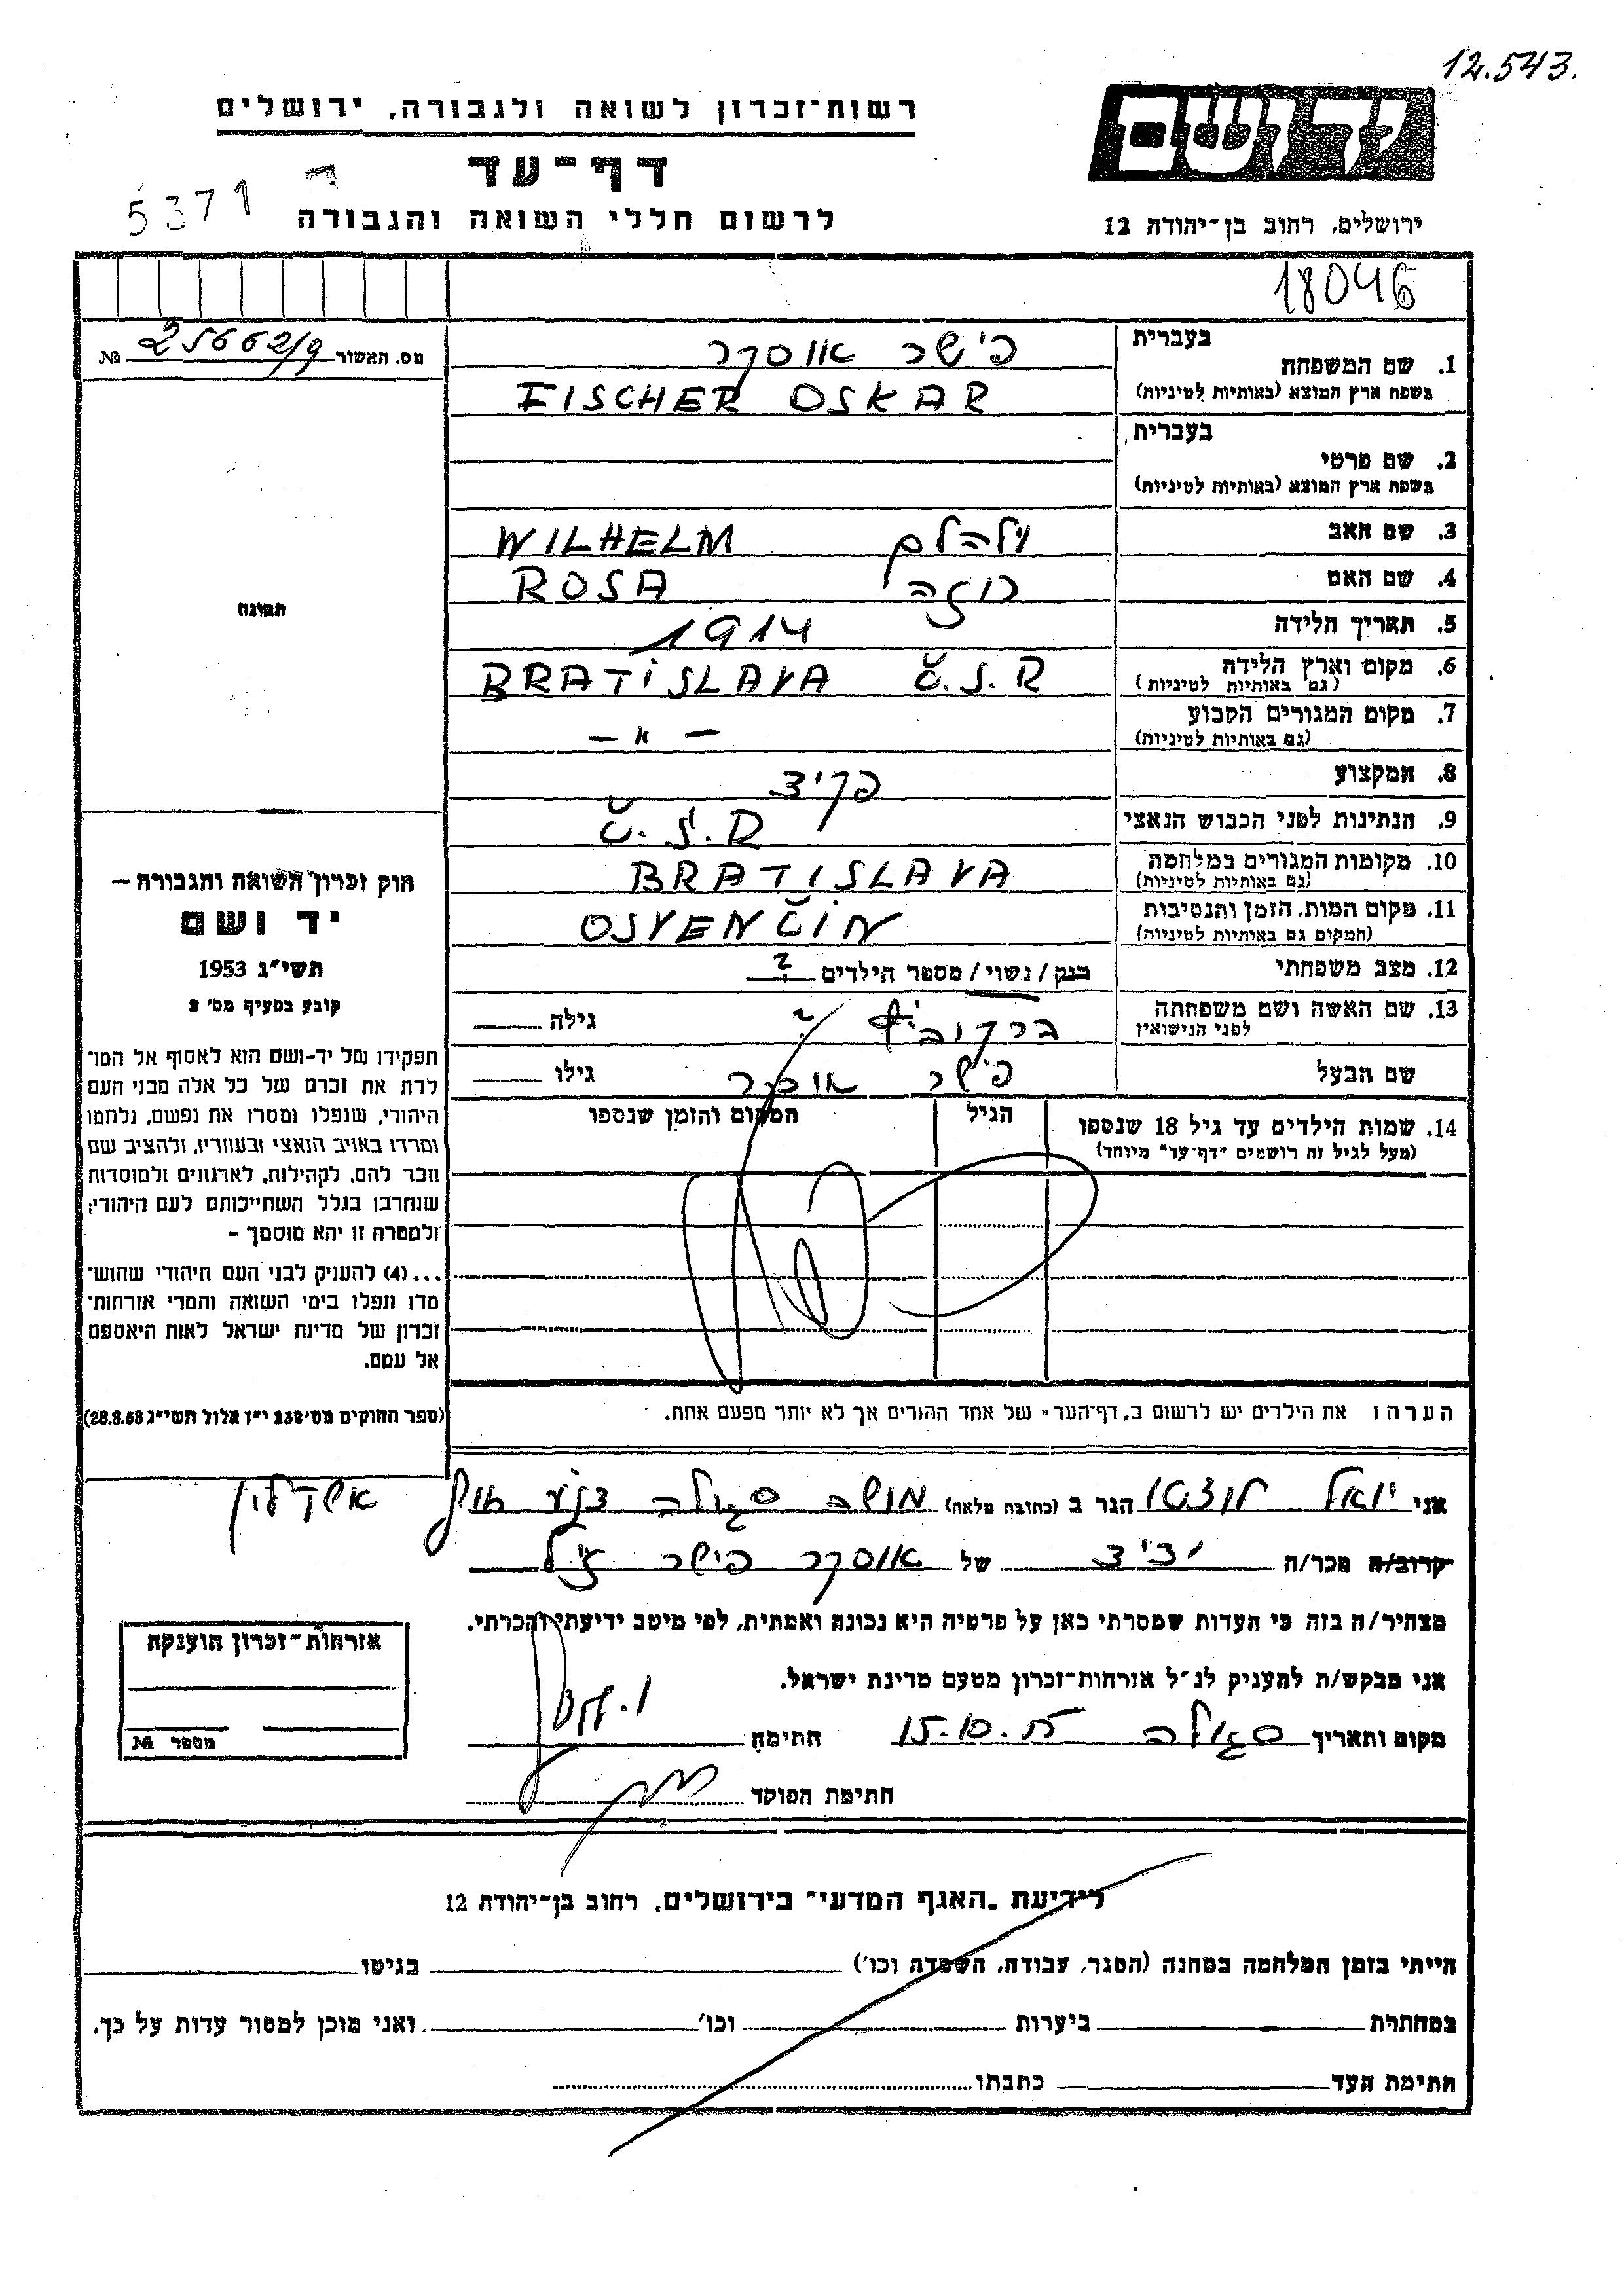 12.543.
רשות־זכרון לשואה ולגבורה, ירושלים
ידושם
דף־עד
5371
לרשום חללי השואה והגבורה
ירושלים, רחוב בן־יהודה 12
18046
מס. האשור 25662/9 №
בעברית
1. שם המשפחה פישר אוסקר
בשפת ארץ המוצא (באותיות לטיניות) FISCHER OSKAR
בעברית
2. שם פרטי
בשפת ארץ המוצא (באותיות לטיניות)
3. שם האב וילהלם WILHELM
4. שם האם רוזה ROSA
5. תאריך הלידה 1914
6. מקום וארץ הלידה BRATISLAVA Č.S.R
(גם באותיות לטיניות)
7. מקום המגורים הקבוע — " —
(גם באותיות לטיניות)
8. המקצוע פקיד
9. הנתינות לפני הכבוש הנאצי Č.S.R
10. מקומות המגורים במלחמה BRATISLAVA
(גם באותיות לטיניות)
11. מקום המות, הזמן והנסיבות OSVENČIN
(המקום גם באותיות לטיניות)
12. מצב משפחתי רווק / נשוי / מספר הילדים ?
13. שם האשה ושם משפחתה ? גילה
לפני הנישואין
שם הבעל פישר אוסקר גילו
14. שמות הילדים עד גיל 18 שנספו הגיל המקום והזמן שנספו
(מעל לגיל זה רושמים "דף־עד" מיוחד)
הערה: את הילדים יש לרשום ב„דף־העד" של אחד ההורים אך לא יותר מפעם אחת.
תמונה
חוק זכרון השואה והגבורה —
יד ושם
תשי"ג 1953
קובע בסעיף מס' 2
תפקידו של יד־ושם הוא לאסוף אל המו־
לדת את זכרם של כל אלה מבני העם
היהודי, שנפלו ומסרו את נפשם, נלחמו
ומרדו באויב הנאצי ובעוזריו, ולהציב שם
וזכר להם, לקהילות, לארגונים ולמוסדות
שנחרבו בגלל השתייכותם לעם היהודי;
ולמטרה זו יהא מוסמך —
...(4) להעניק לבני העם היהודי שהוש־
מדו ונפלו בימי השואה והמרי אזרחות־
זכרון של מדינת ישראל לאות היאספם
אל עמם.
(ספר החוקים מס' 132 י"ז אלול תשי"ג 28.8.53)
אני יואל הגר ב (כתובת מלאה) מושב סגולה אשקלון
קרוב/ה מכר/ה ידיד של אוסקר פישר ז"ל
מצהיר/ה בזה כי העדות שמסרתי כאן על פרטיה היא נכונה ואמתית, לפי מיטב ידיעתי והכרתי.
אני מבקש/ת להעניק לנ"ל אזרחות־זכרון מטעם מדינת ישראל.
מקום ותאריך סגולה 15.10.55 חתימה
חתימת הפוקד
אזרחות־זכרון הוענקה
מספר №
לידיעת „האגף המדעי" בירושלים, רחוב בן־יהודה 12
הייתי בזמן המלחמה במחנה (הסגר, עבודה, השמדה וכו') בגיטו
במחתרת ביערות וכו' ואני מוכן למסור עדות על כך.
חתימת העד כתבתו